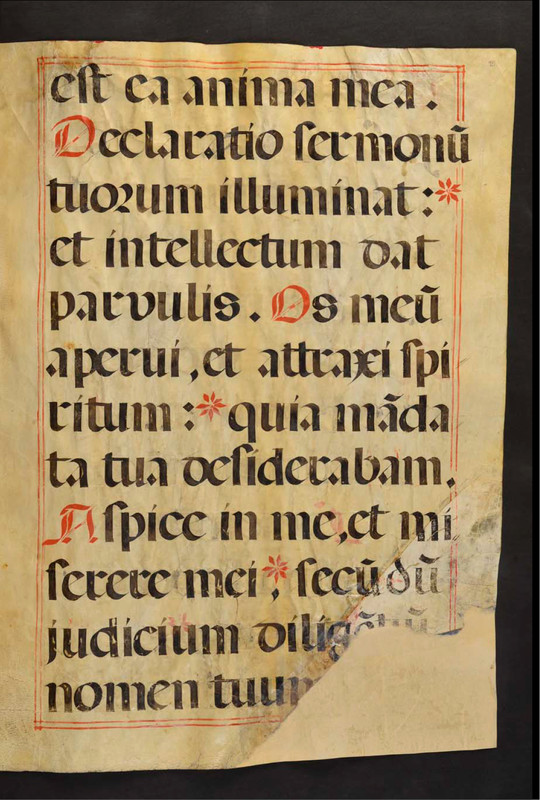 est ea anima mea .
Declaratio sermonũ
tuorum illuminat : *
et intellectum dat
parvulis . Os meũ
aperui , et attraxi spi
ritum : * quia mãda
ta tua desiderabam .
Aspice in me , et mi
serere mei , * secũdũ
judicium diligẽtiũ
nomen tuum